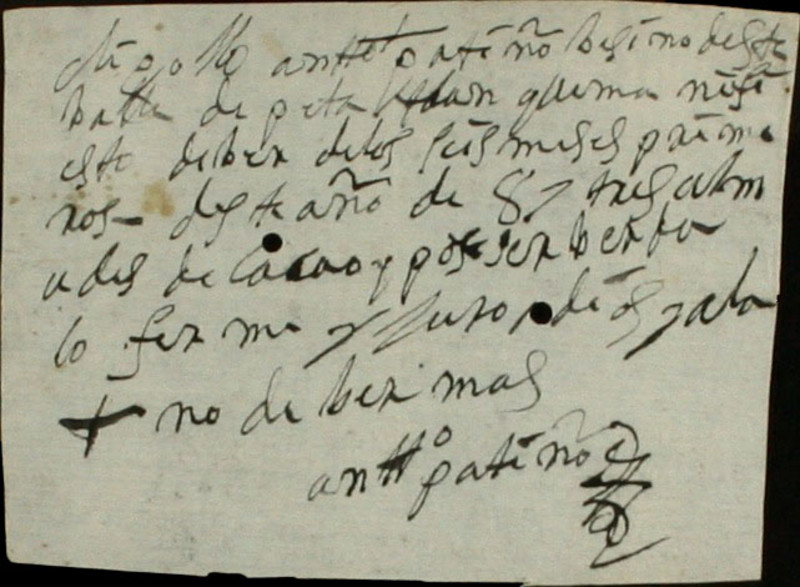 digo llo anttº patiño besino deste
balle de petatlan que ma nifi
esto deber delos seis meses prime
ros — deste año de 87 tres alm
udes de cacao y por ser berda
lo fir me y juro a dios y a la
+ no deber mas
anttº patiño